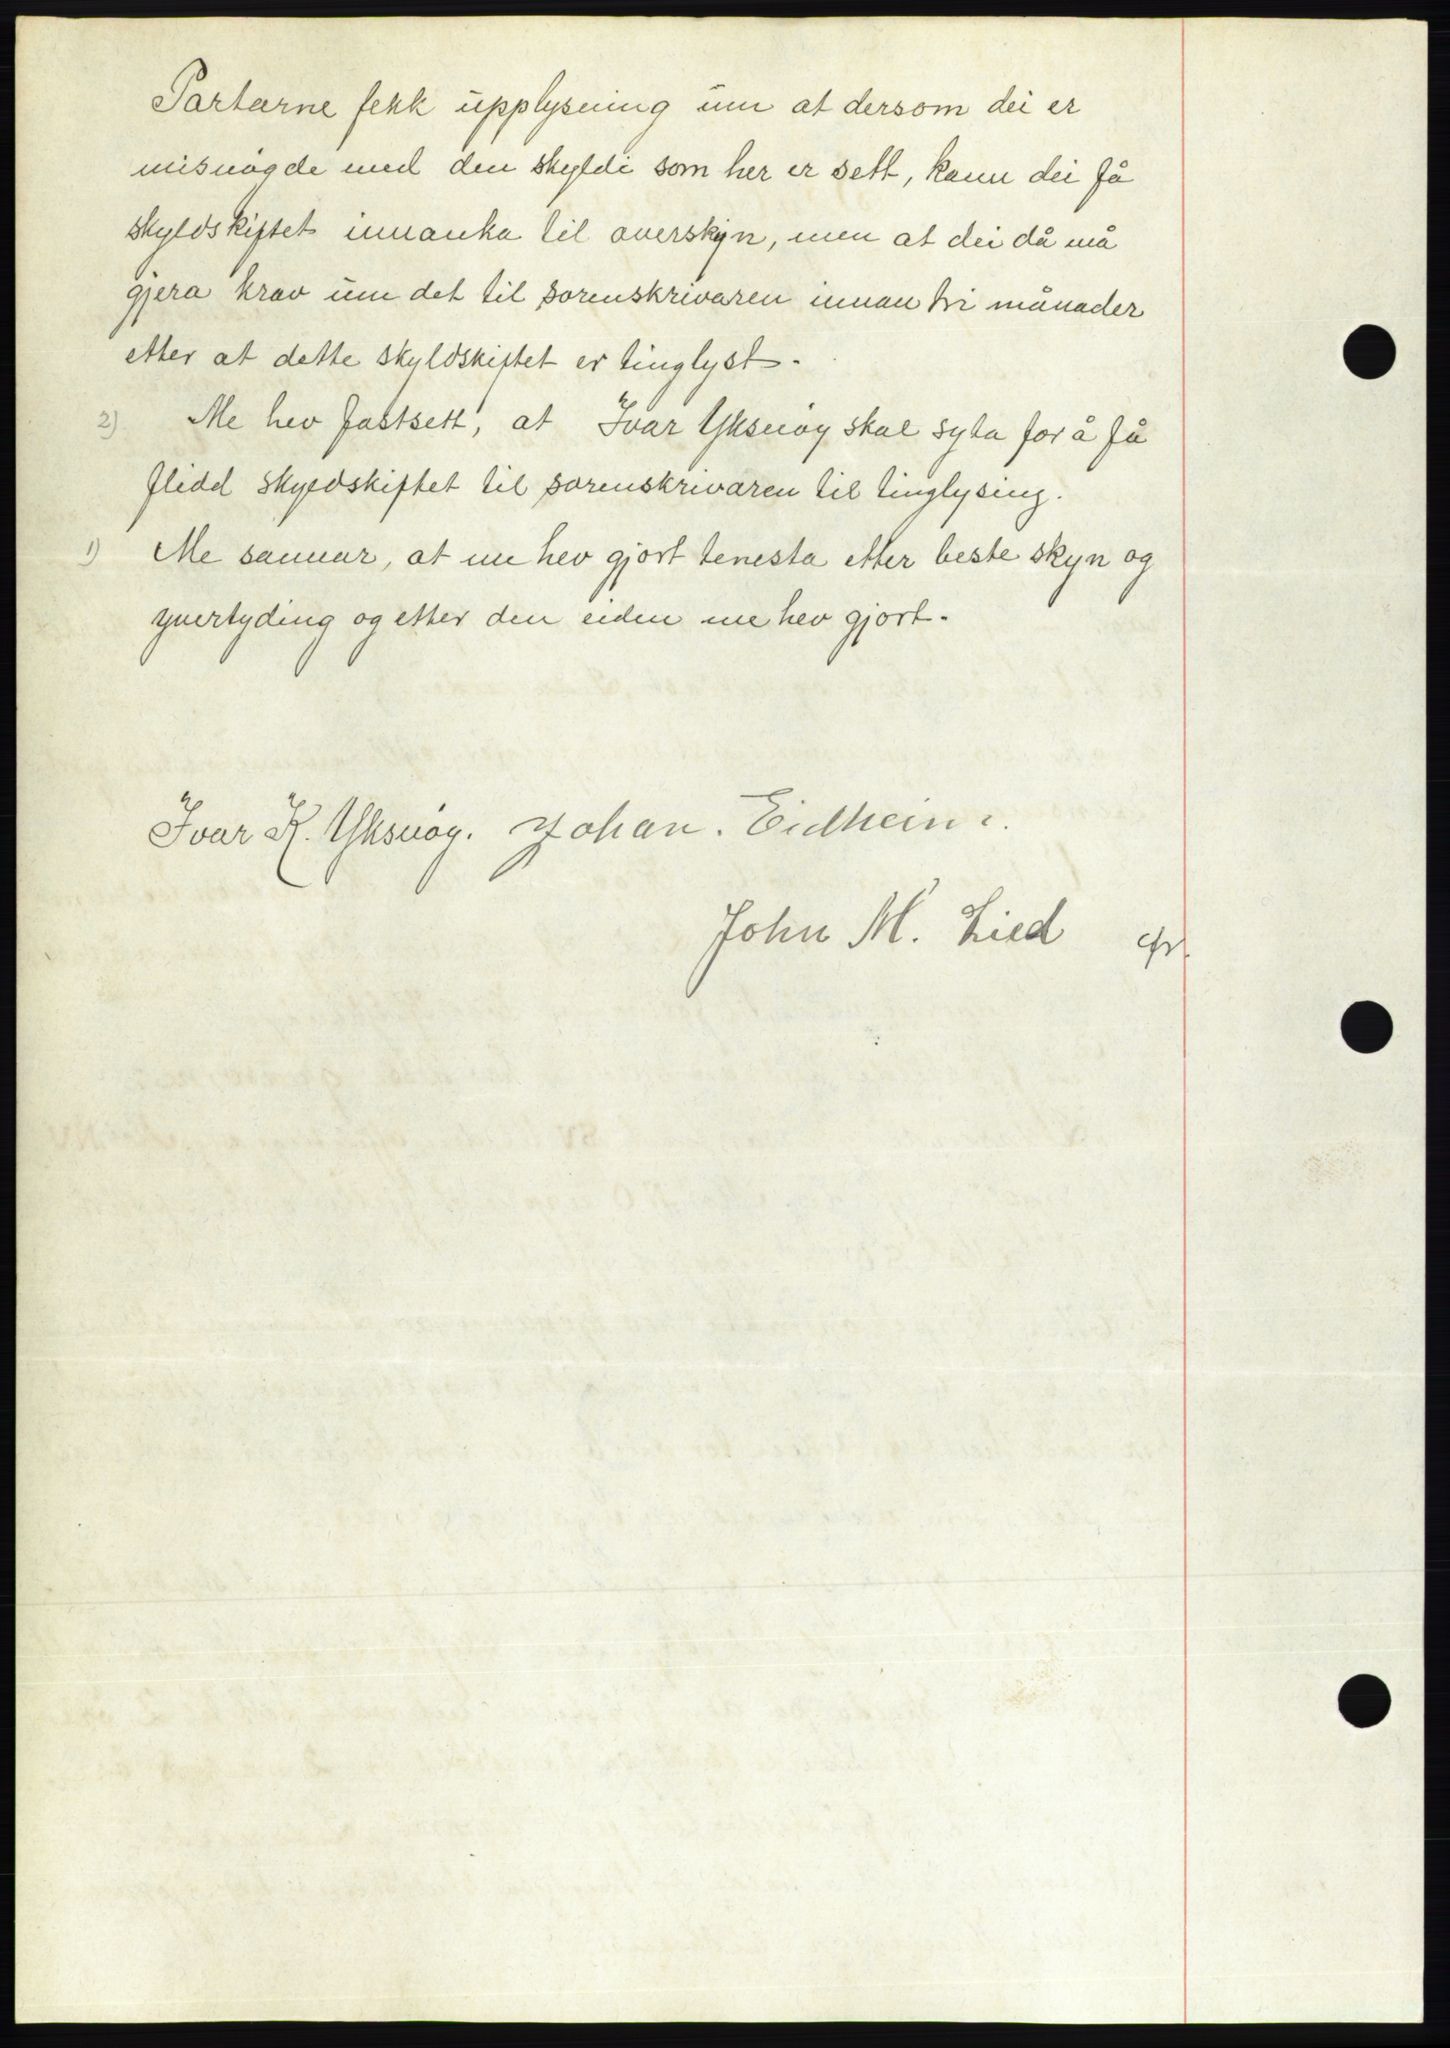 Partarne fekk upplysning um at dersom dei er
misnøgde med den skyldi som her er sett, kann dei få
skyldskiftet innanka til overskyn, men at dei då må
gjera krav um det til sorenskrivaren innan tri månader
etter at dette skyldskiftet er tinglyst.
2) Me hev fastsett, at Ivar Yksnøy skal syta for å få
flidd skyldskiftet til sorenskrivaren til tinglysing.
1) Me sannar, at me hev gjort tenesta etter beste skyn og
yvertyding og etter den eiden me hev gjort.
Ivar K. Yksnøy. Johan. Eidheim.
John M. Lied